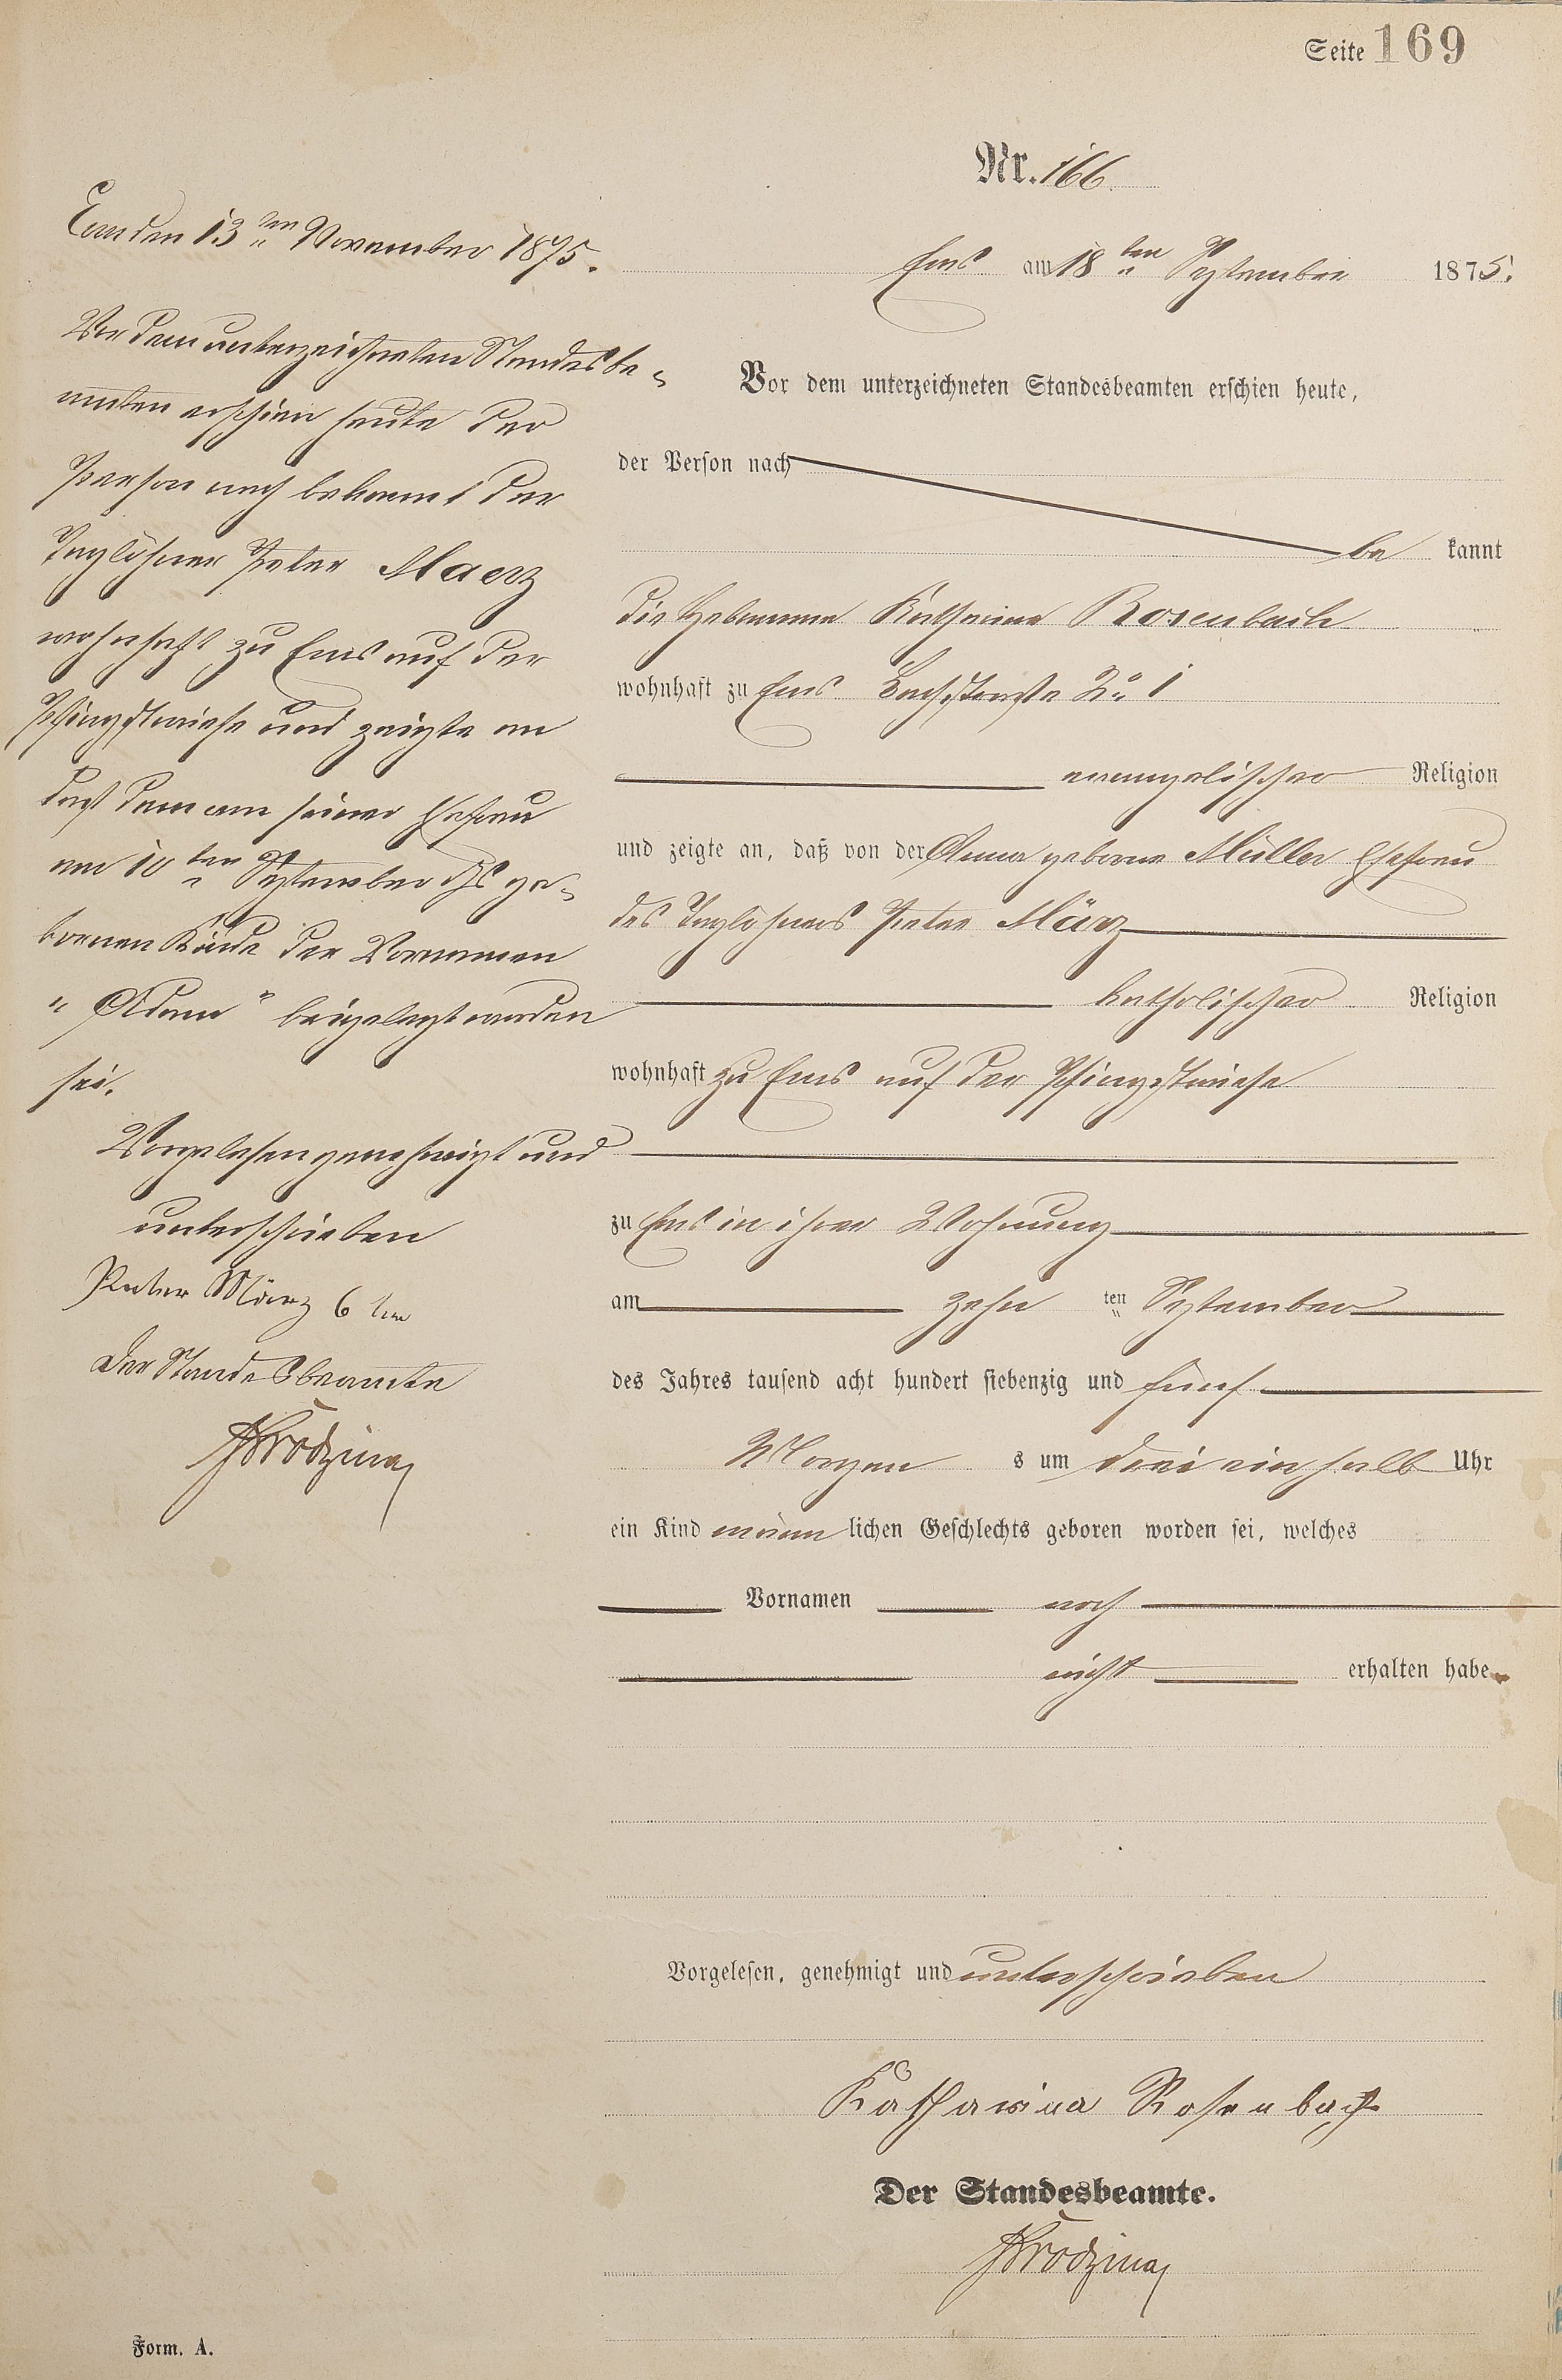 Seite 169
Nr. 166.
Ems den 13ten November 1875.
Vor dem unterzeichneten Standesbe-
amten erschien heute der
Person nach bekannt der
Taglöhner Peter Maerz
wohnhaft zu Ems auf der
Pfingstwiese und zeigte an
daß dem von seiner Ehefrau
am 10ten September djs ge-
bornen Kinde der Vornamen
"Adam" beigelegt worden
sei.
Vorgelesen genehmigt und
unterschrieben
Peter März
Der Standesbeamte
Ems am 18ten September 1875.
Vor dem unterzeichneten Standesbeamten erschien heute,
der Person nach
be kannt
die Hebamme Katharina Rosenbach
wohnhaft zu Ems Bachstraße No 1
evangelischer Religion
und zeigte an, daß von der Anna geborne Müller Ehefrau
des Taglöhners Peter März
katholischer Religion
wohnhaft zu Ems auf der Pfingstwiese
zu Ems in ihrer Wohnung
am zehn ten September
des Jahres tausend acht hundert siebenzig und fünf
Morgen s um drei ein halb Uhr
ein Kind männ lichen Geschlechts geboren worden sei, welches
Vornamen noch
nicht erhalten habe
Vorgelesen, genehmigt und unterschrieben
Katharina Rosenbach
Der Standesbeamte.
Form. A.